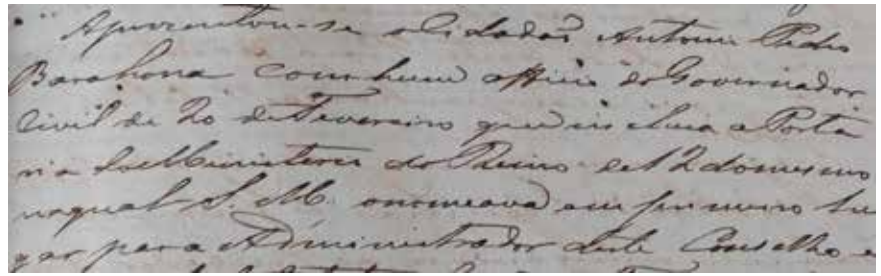 Aprezentou-se o Cidadaõ Antonio Pedro
Barahona com hum officio do Governador
Civil de 20 de Fevereiro que incluia a Porta
ria do Ministerio do Reino de 12 do mesmo
na qual S. M. o nomeava em primeiro lu
gar para Administrador deste Conselho e